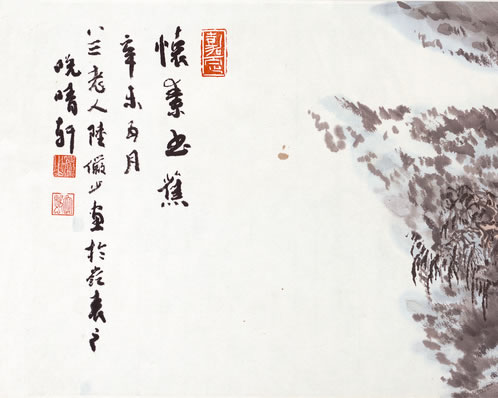 懷素書蕉
辛未五月
八三老人陸儼少畫於嶺表之
晚晴軒